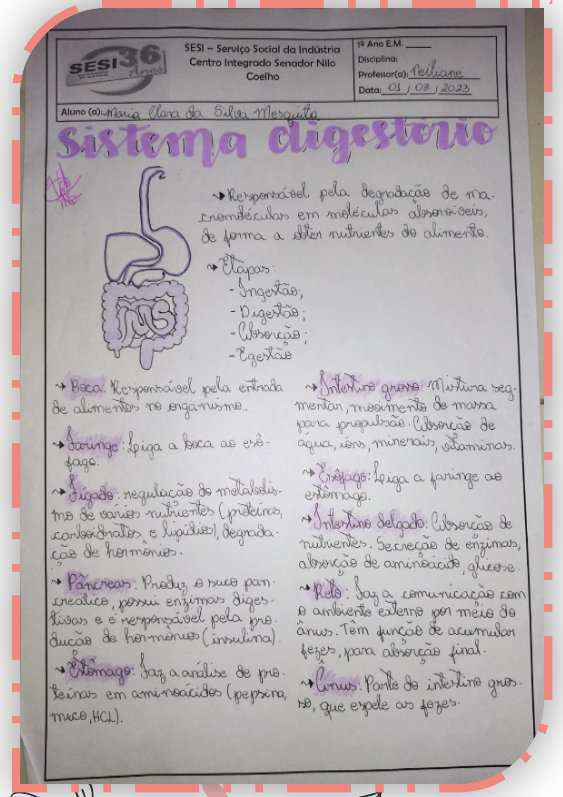 SESI 36 Anos
SESI – Serviço Social da Indústria
Centro Integrado Senador Nilo
Coelho
1º Ano E.M.
Disciplina:
Professor(a): Neiliane
Data: 01 / 08 / 2023
Aluno (a): Maria Clara da Silva Mesquita
Sistema digestorio
→ Responsável pela degradação de ma-
cromoléculas em moléculas absorvíveis,
de forma a obter nutrientes do alimento.
→ Etapas:
- Ingestão;
- Digestão;
- Absorção;
- Egestão
→ Boca: Responsável pela entrada
de alimentos no organismo.
→ Faringe: Liga a boca ao esô-
fago.
→ Fígado: regulação do metabolis-
mo de vários nutrientes (proteínas,
carboidratos e lipídios), degrada-
ção de hormônios.
→ Pâncreas: Produz o suco pan-
creático, possui enzimas diges-
tivas e é responsável pela pro-
dução de hormônios (insulina).
→ Estômago: Faz a análise de pro-
teínas em aminoácidos (pepsina,
muco, HCL).
→ Intestino grosso: Mistura seg-
mentar, movimento de massa
para propulsão. Absorção de
água, íons, minerais, vitaminas.
→ Esôfago: Liga a faringe ao
estômago.
→ Intestino delgado: Absorção de
nutrientes. Secreção de enzimas,
absorção de aminoácido, glicose.
→ Reto: Faz a comunicação com
o ambiente externo por meio do
ânus. Têm função de acumular
fezes, para absorção final.
→ Ânus: Parte do intestino gros-
so, que expele as fezes.